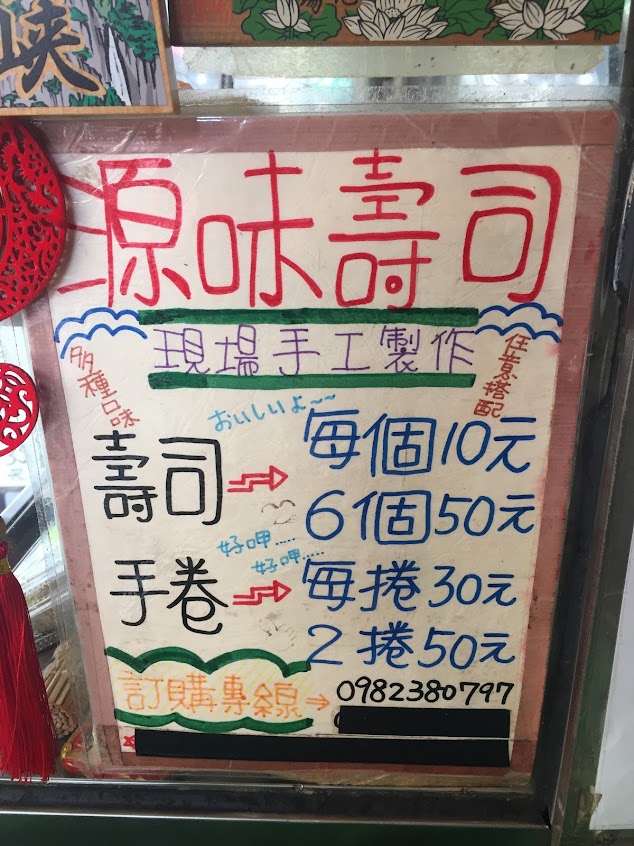 峽
源味壽司
現場手工製作
多種口味
任意搭配
おいしいよ~~
壽司
每個10元
6個50元
好呷.....
好呷.....
手卷
每捲30元
2捲50元
訂購專線
0982380797